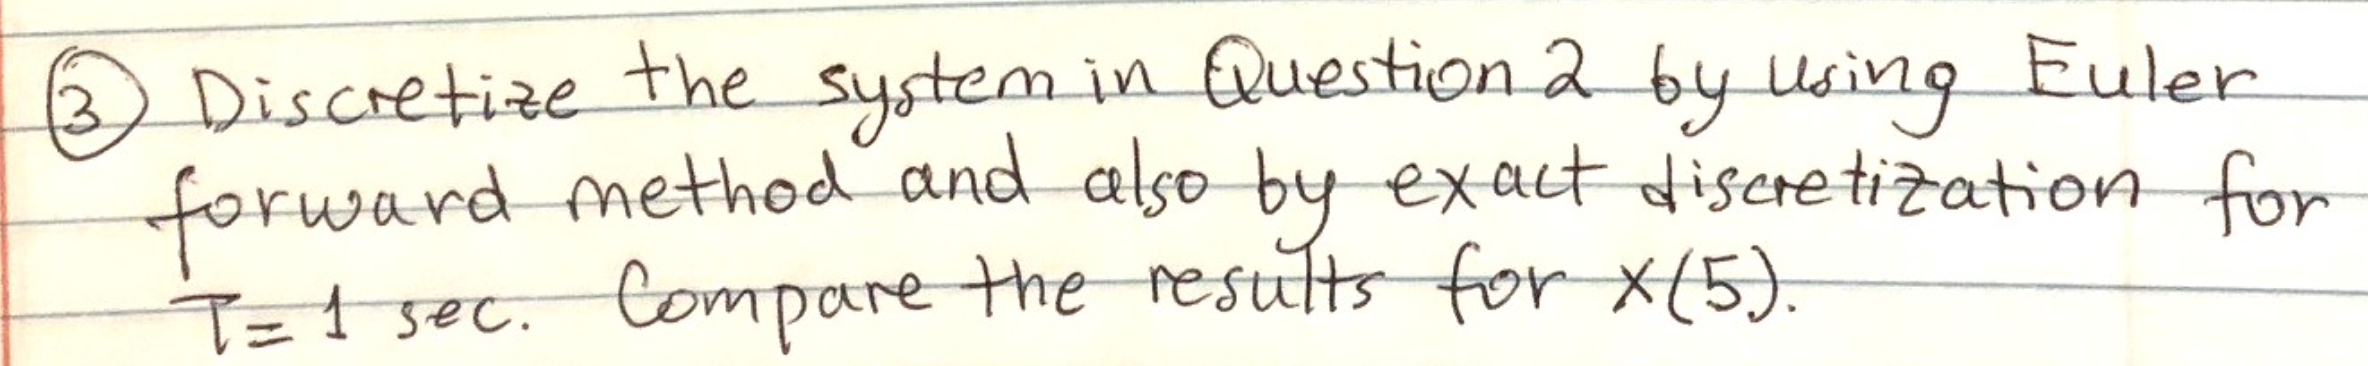 ③ Discretize the system in Question 2 by using Euler
forward method and also by exact discretization for
T=1 sec. Compare the results for x(5).